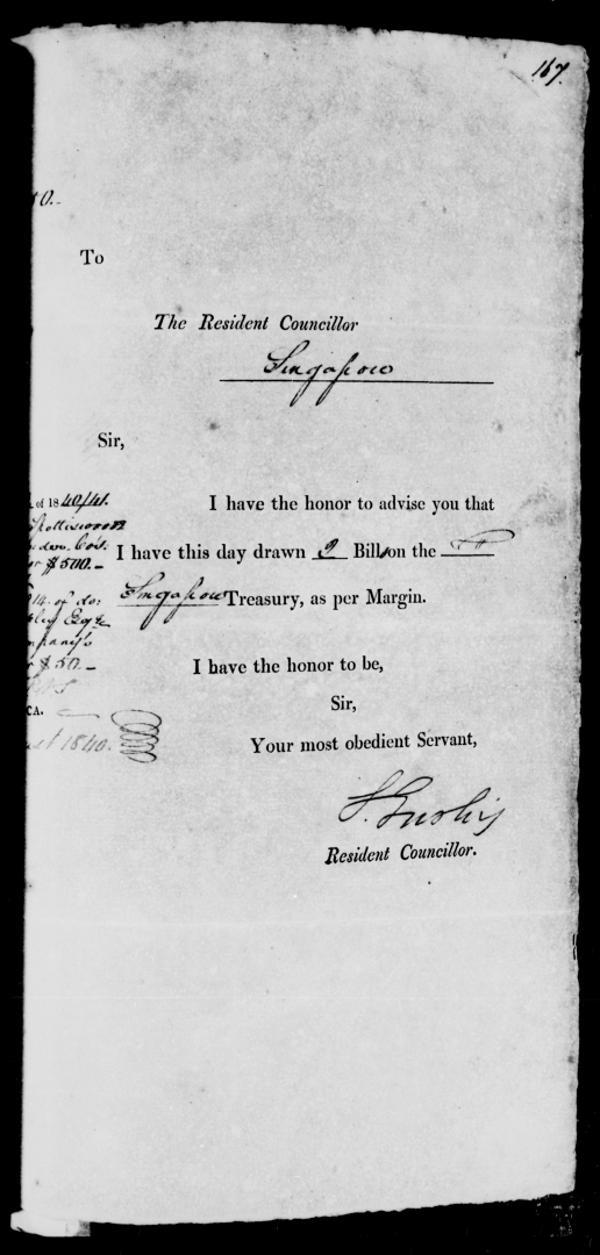 167.
0.-
To
The Resident Councillor
Singapore
Sir,
of 1840/41.
I have the honor to advise you that
I have this day drawn 2 Bills on the
$500.-
Singapore Treasury, as per Margin.
14. of do:
Esqre
mpany's
$50.-
I have the honor to be,
Sir,
CA.
Your most obedient Servant,
1840.
Resident Councillor.